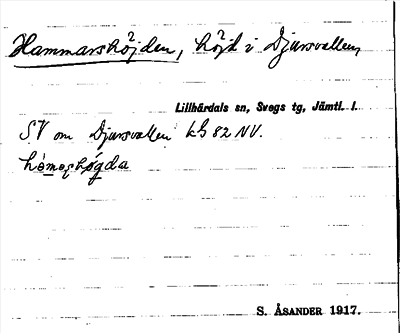 Hammarshöjden, höjd i Djursvallen,
Lillhärdals sn, Svegs tg, Jämtl. l.
SV om Djursvallen kb 82 NV.
S. ÅSANDER 1917.